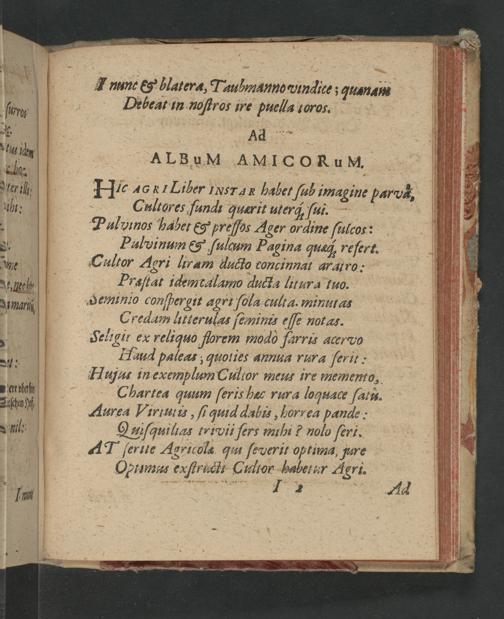 I nunc & blatera, Taubmanno vindice; quænam
Debeat in nostros ire puella toros.
Ad
ALBuM AMICORuM.
HIc AGRI Liber INSTAR habet sub imagine parvâ,
Cultores fundi quærit uterq́; sui.
Pulvinos habet & pressos Ager ordine sulcos:
Pulvinum & sulcum Pagina quæq́; refert.
Cultor Agri liram ducto concinnat aratro:
Præstat idem calamo ducta litura tuo.
Seminio conspergit agri sola culta minutas
Credam litterulas seminis esse notas.
Seligit ex reliquo florem modò farris acervo
Haud paleas; quoties annua rura serit:
Hujus in exemplum Cultor meus ire memento,
Chartea quum seris hæc rura loquace satu.
Aurea Virtutis, si quid dabis, horrea pande:
Quisquilias trivii sers mihi? nolo seri.
AT serite Agricolæ qui severit optima, jure
Optimus exstructi Cultor habetur Agri.
I 2 Ad
furros
idem
hoc
ter illi:
ihi:
nil:
I nunc